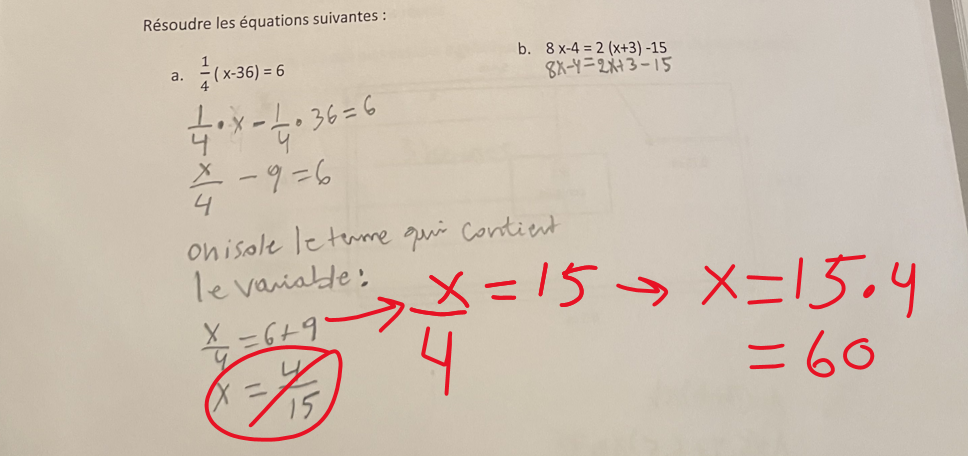 Résoudre les équations suivantes :
a. 1/4 ( x-36) = 6
1/4 • x - 1/4 • 36 = 6
x/4 - 9 = 6
on isole le terme qui contient
le variable :
x/4 = 6+9 → x/4 = 15 → x = 15 . 4
= 60
x = 4/15
b. 8 x-4 = 2 (x+3) -15
8x-4=2x+3-15